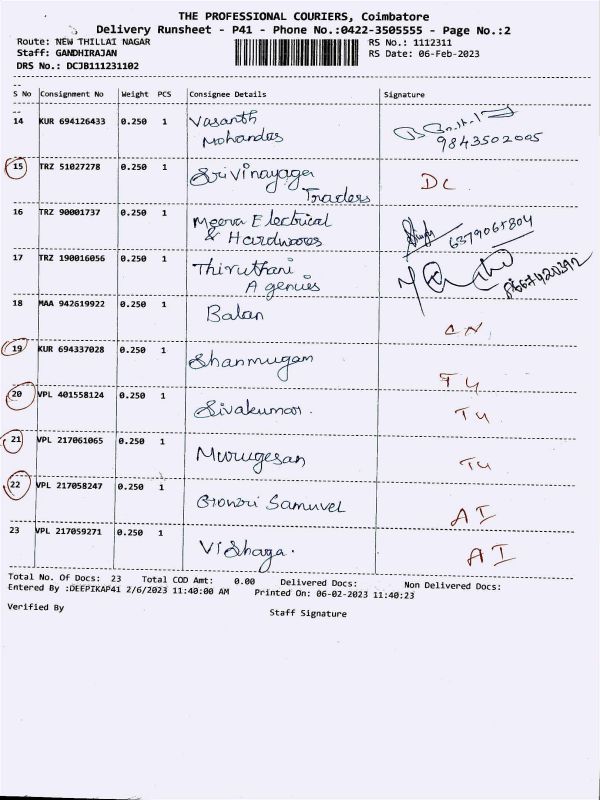 THE PROFESSIONAL COURIERS, Coimbatore
Delivery Runsheet - P41 - Phone No.:0422-3505555 - Page No.:2
Route: NEW THILLAI NAGAR
RS No.: 1112311
Staff: GANDHIRAJAN
RS Date: 06-Feb-2023
DRS No.: DCJB111231102
S No Consignment No Weight PCS Consignee Details Signature
14 KUR 694126433 0.250 1 Vasanth
Mohandas 9843502005
15 TRZ 51027278 0.250 1 Sri Vinayaga DL
Traders
16 TRZ 90001737 0.250 1 Meera Electrical 6379065804
& Hardwares
17 TRZ 190016056 0.250 1 Thiruthani
Agenies 8667420392
18 MAA 942619922 0.250 1 Balan
19 KUR 694337028 0.250 1 Shanmugam T4
20 VPL 401558124 0.250 1 Sivakumar. T4
21 VPL 217061065 0.250 1 Murugesan T4
22 VPL 217058247 0.250 1 Gowri Samuvel AI
23 VPL 217059271 0.250 1 Vishaga. AI
Total No. Of Docs: 23 Total COD Amt: 0.00 Delivered Docs: Non Delivered Docs:
Entered By :DEEPIKAP41 2/6/2023 11:40:00 AM Printed On: 06-02-2023 11:40:23
Verified By Staff Signature